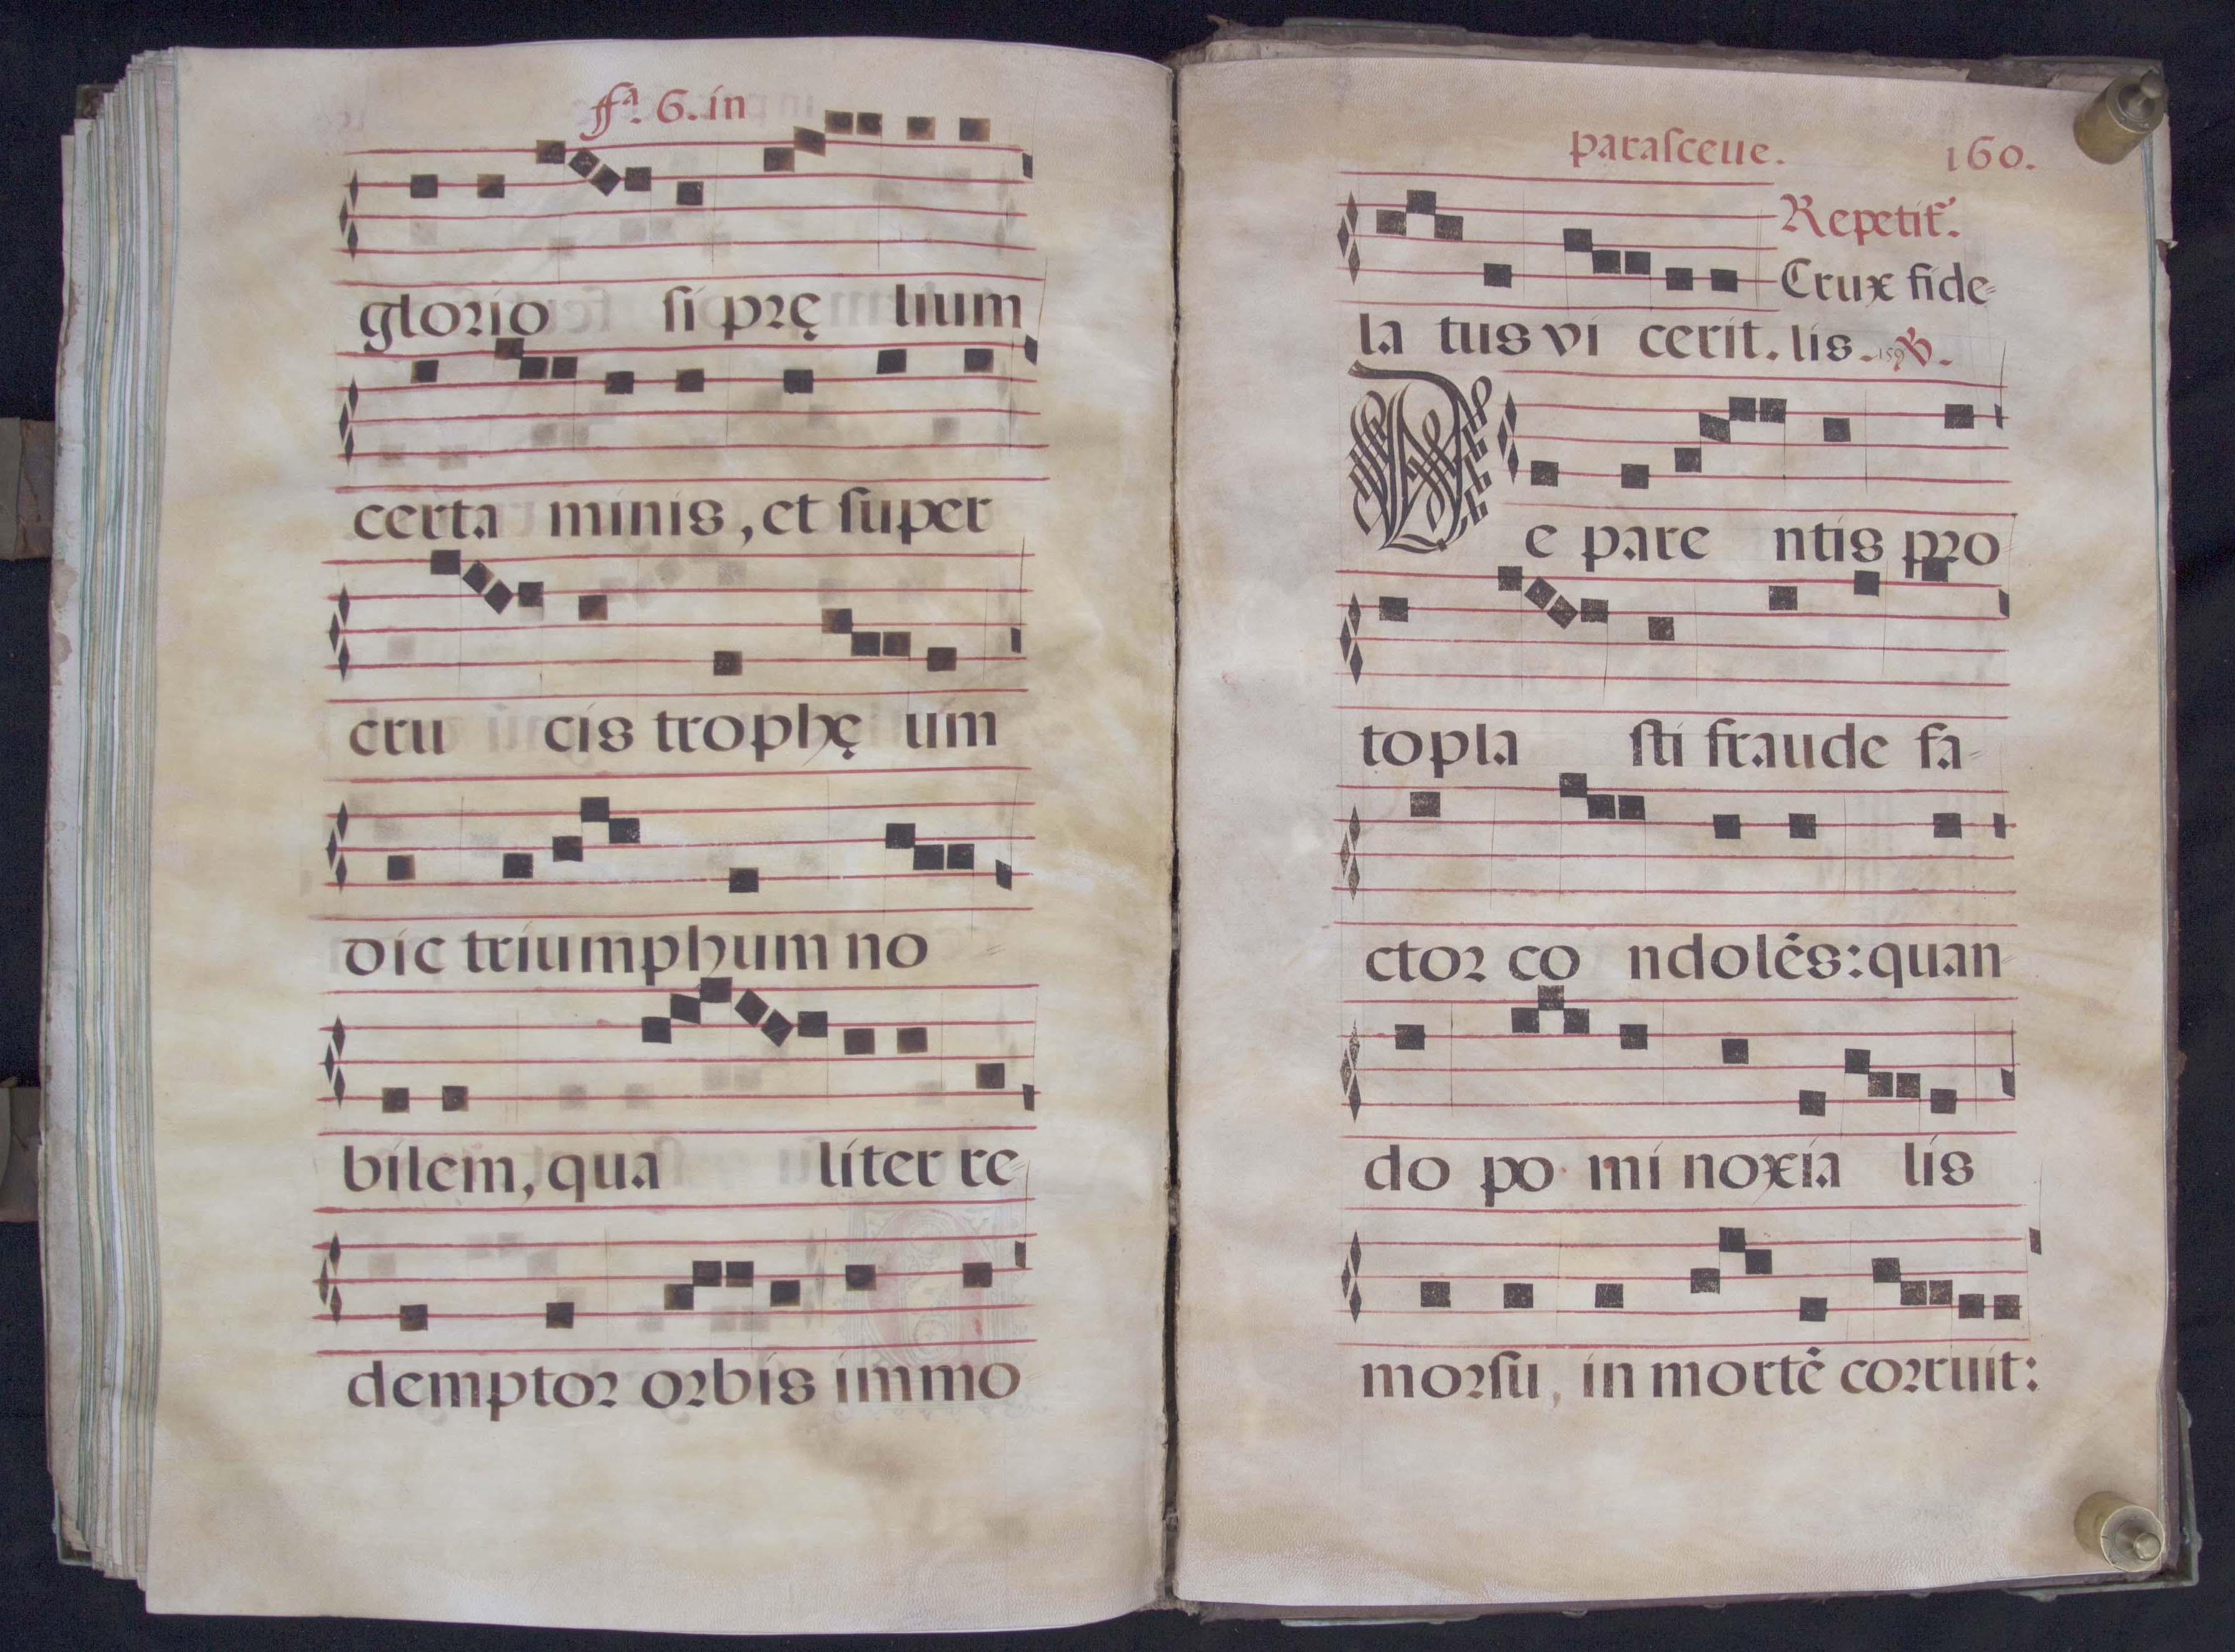 ffª. 6. in
glorio si prę lium
certa minis, et ſuper
cru cis trophę um
dic triumphum no
bilem, qua liter re
demptor orbis immo
paraſceue. 160.
Repetit̃.
Crux fide
la tus vi cerit. lis. 159 ℣.
De pare ntis pro
topla ſti fraude fa
ctor co ndolẽs: quan
do po mi noxia lis
morſu, in mortẽ corruit: